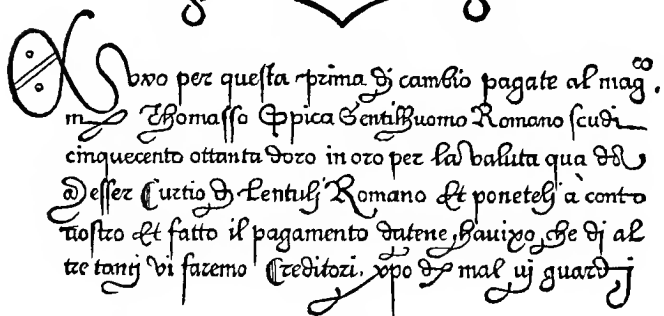 per questa prima dj cambio pagate al mag.co
m Thomasso Oppica Gentilhuomo Romano scudi
cinquecento ottanta doro in oro per la valuta qua da
Messer Curtio dj Lentulj Romano Et ponetelj à conto
nostro Et fatto il pagamento datene, havixo, che dj al
tre tantj vi faremo Creditori. xpo dj mal uj guardj